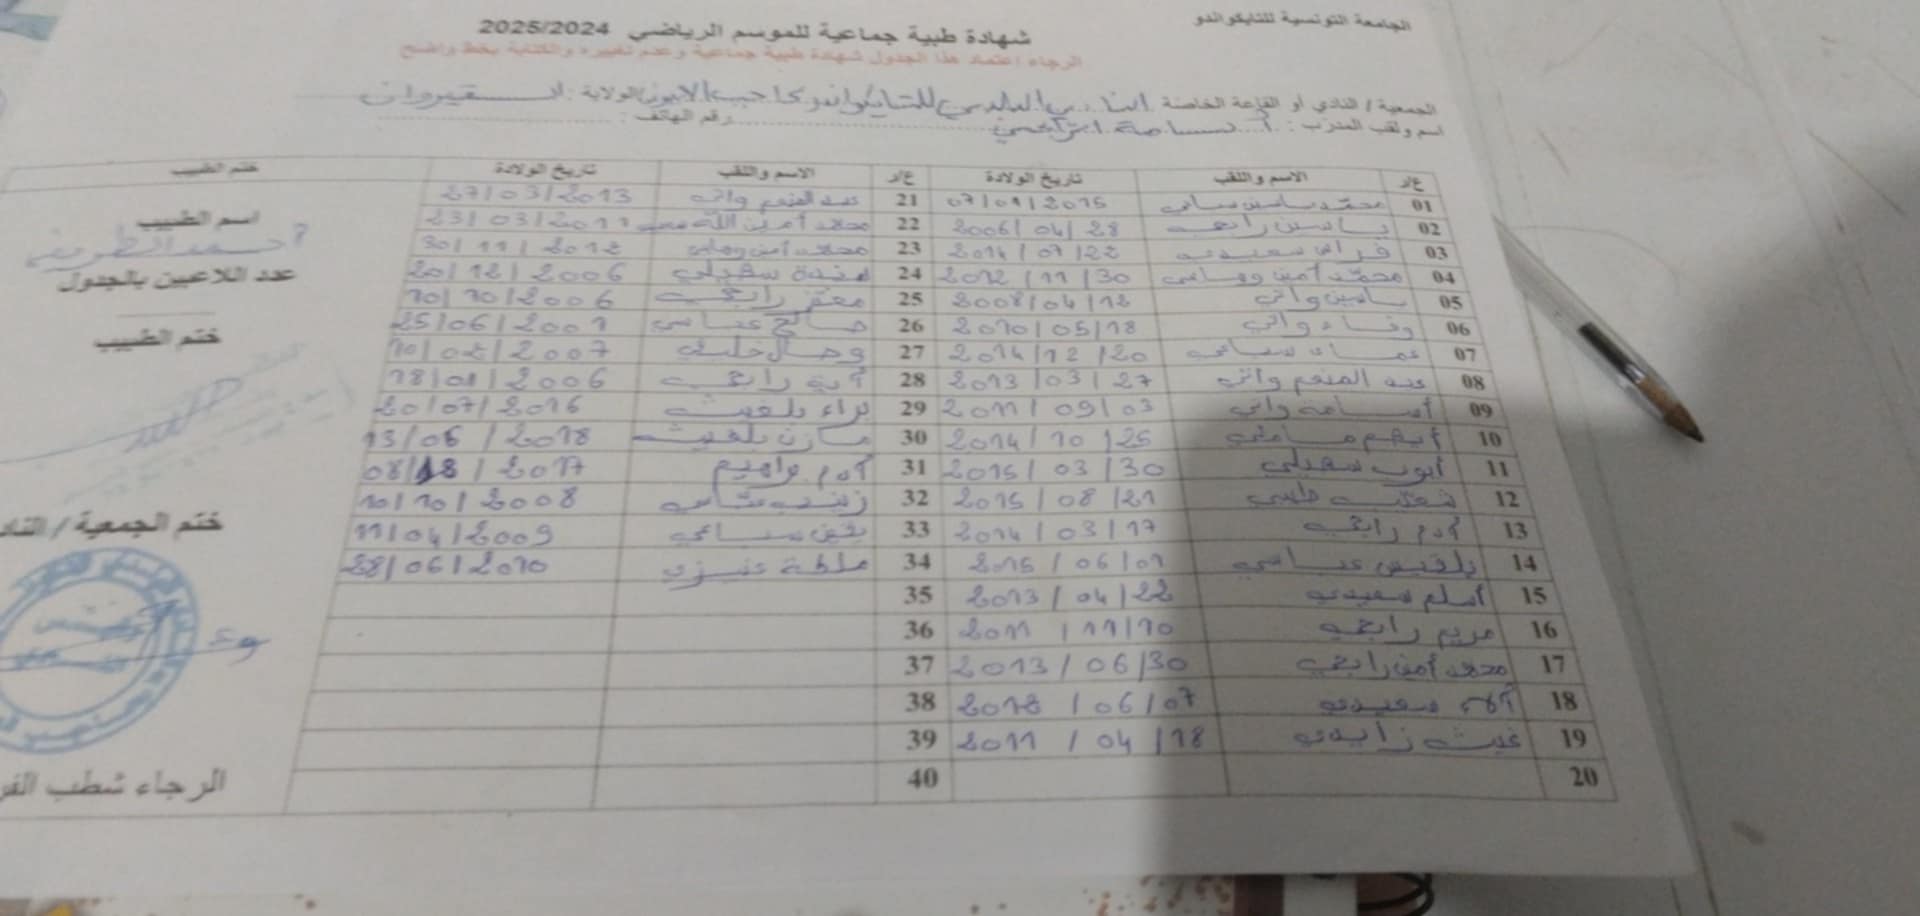 الجامعة التونسية للتايكواندو
شهادة طبية جماعية للموسم الرياضي 2025/2024
الرجاء اعتماد هذا الجدول شهادة طبية جماعية وعدم تغييره والكتابة بخط واضح
الجمعية / النادي أو القاعة الخاصة النادي البلدي للتايكواندو بحاجب العيون الولاية : القيروان
اسم ولقب المدرب : أسامة رقم الهاتف :
ع/ر الاسم واللقب تاريخ الولادة ع/ر الاسم واللقب تاريخ الولادة ختم الطبيب
01 محمد ياسين 07/01/2015 21 عبد المنعم واني 27/03/2013
02 ياسين رابحي 2006/04/28 22 محمد أمين الله 23/03/2011
03 فراس سعيدي 2014/07/22 23 محمد أمين 30/11/2012
04 محمد أمين 2012/11/30 24 هندة سهيلي 20/12/2006
05 ياسين واني 2008/04/12 25 معتز رابحي 10/10/2006
06 وفاء واني 2010/05/18 26 صالح عباسي 25/06/2001
07 عماد 2014/12/20 27 وصال 10/02/2007
08 عبد المنعم واني 2013/03/27 28 آية رابحي 18/01/2006
09 أسامة واني 2011/09/03 29 براء بلغيث 20/07/2016
10 أيهم 2014/10/25 30 مازن بلغيث 13/06/2018
11 أيوب سهيلي 2015/03/30 31 آدم 2017
12 2015/08/21 32 زينب 10/10/2008
13 آدم رابحي 2014/03/17 33 يقين 11/04/2009
14 بلقيس عباسي 2015/06/01 34 28/06/2010
15 أسلم سعيدي 2013/04/22 35
16 مريم رابحي 2011/11/10 36
17 محمد أمين رابحي 2013/06/30 37
18 آلاء سعيدي 2012/06/07 38
19 غيث زايدي 2011/04/18 39
20 40
اسم الطبيب
عدد اللاعبين بالجدول
ختم الطبيب
ختم الجمعية / الناد
الرجاء شطب الفر